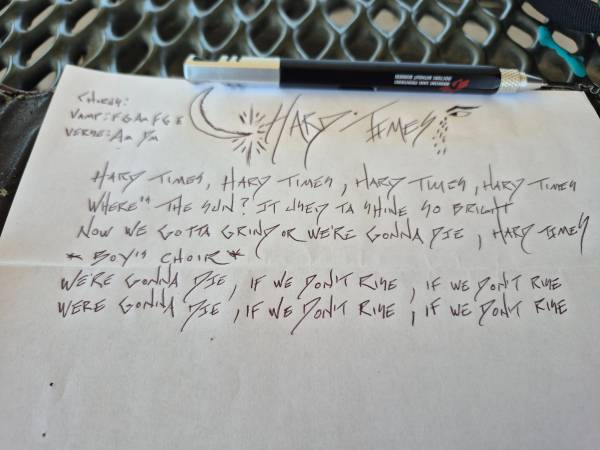 Chords:
Vamp: F G Am F G E
Verse: Am Dm
HARD TIMES
HARD TIMES, HARD TIMES, HARD TIMES, HARD TIMES
WHERE'S THE SUN? IT USED TA SHINE SO BRIGHT
NOW WE GOTTA GRIND OR WE'RE GONNA DIE, HARD TIMES
* BOY'S CHOIR *
WE'RE GONNA DIE, IF WE DON'T RISE, IF WE DON'T RISE
WE'RE GONNA DIE, IF WE DON'T RISE, IF WE DON'T RISE